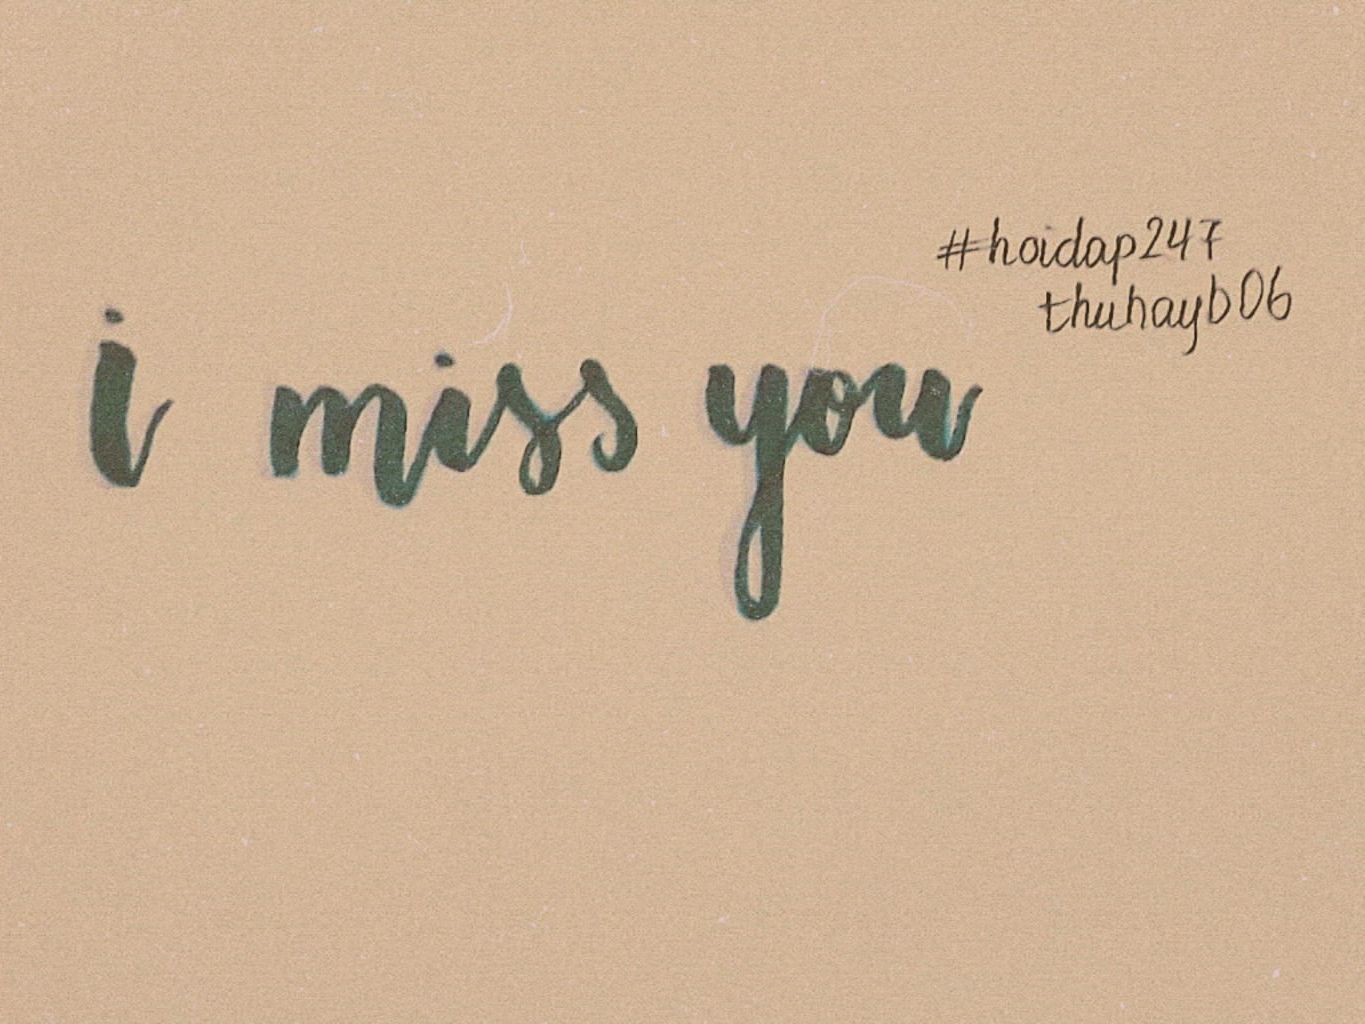 #hoidap247
thuhayb06
i miss you